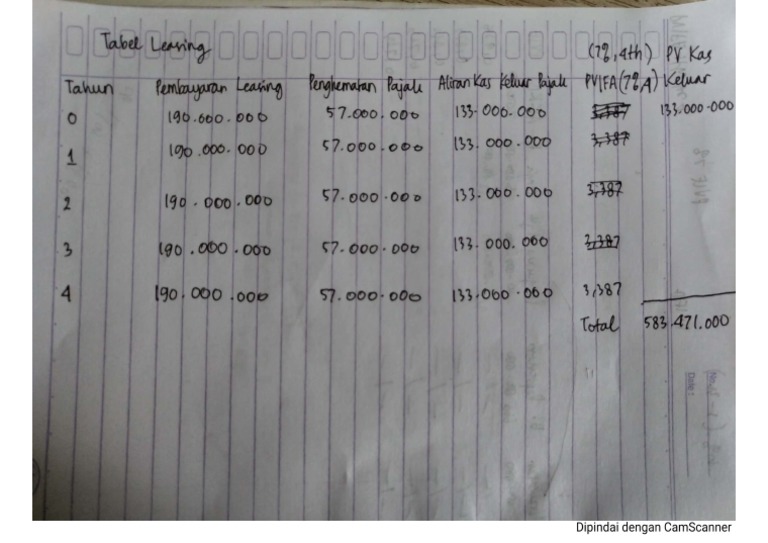 Tabel Leasing
(7%, 4th) PV Kas
Tahun Pembayaran Leasing Penghematan Pajak Aliran Kas Keluar Pajak PVIFA (7%, 4) Keluar
0 190.000.000 57.000.000 133.000.000 3,387 133.000.000
1 190.000.000 57.000.000 133.000.000 3,387
2 190.000.000 57.000.000 133.000.000 3,387
3 190.000.000 57.000.000 133.000.000 3,387
4 190.000.000 57.000.000 133.000.000 3,387
Total 583.471.000
Dipindai dengan CamScanner